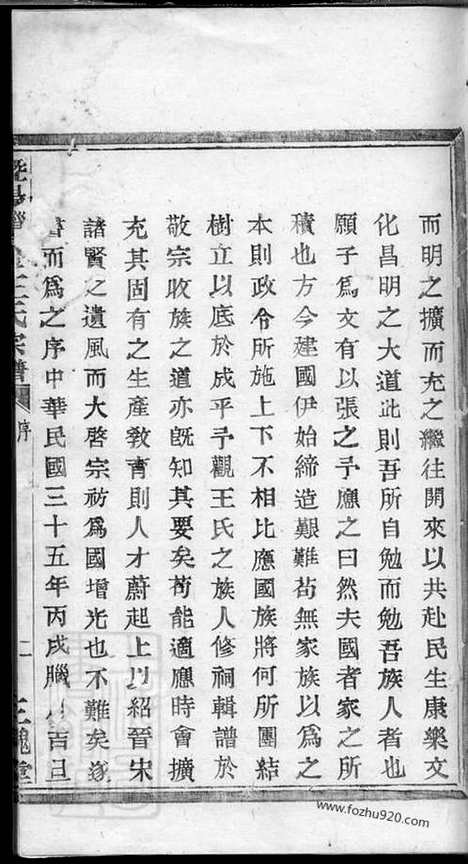 而明之擴而充之繼往開來以共赴民生康樂文
化昌明之大道此則吾所自勉而勉吾族人者也
願子爲文有以張之予應之曰然夫國者家之所
積也方今建國伊始締造艱難苟無家族以爲之
本則政令所施上下不相比應國族將何所團結
樹立以底於成平予觀王氏之族人修祠輯譜於
敬宗收族之道亦旣知其要矣苟能適應時會擴
充其固有之生產敎育則人才蔚起上以紹晉宋
諸賢之遺風而大啓宗祊爲國增光也不難矣遂
書而爲之序中華民國三十五年丙戌臘月吉旦
王氏宗譜
序
二
三槐堂
www.fozhu920.com